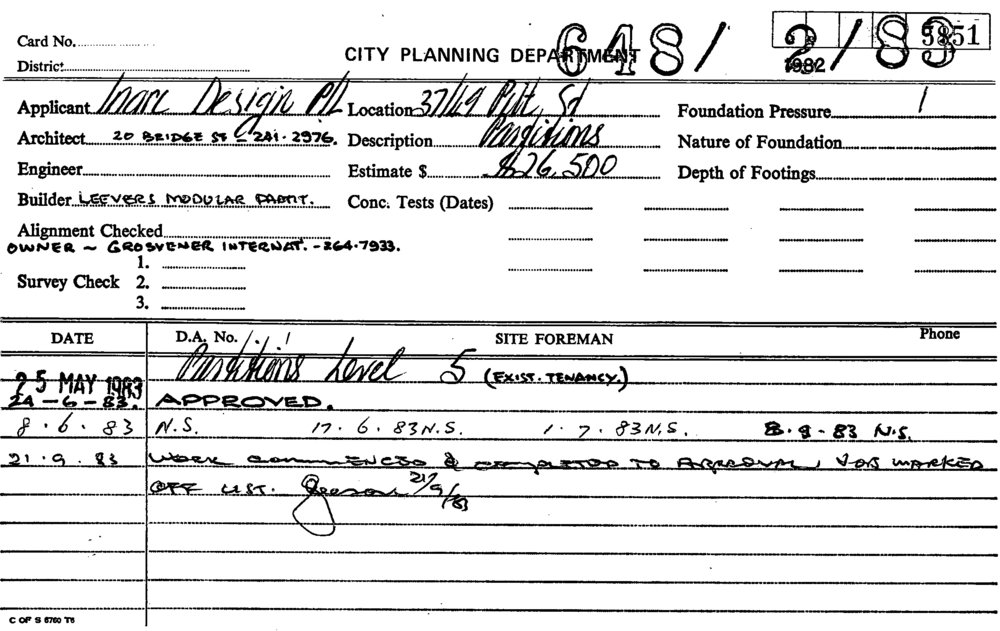 Card No.
CITY PLANNING DEPARTMENT
648/ 2/83
5851
1982
District
Applicant Inarc Design P/L Location 37/49 Pitt St Foundation Pressure /
Architect 20 BRIDGE ST - 241.2976. Description Partitions Nature of Foundation
Engineer Estimate $ $26,500 Depth of Footings
Builder LEEVERS MODULAR PARTIT. Conc. Tests (Dates)
Alignment Checked
OWNER ~ GROSVENER INTERNAT. - 264.7933.
1.
Survey Check 2.
3.
DATE D.A. No. / / SITE FOREMAN Phone
25 MAY 1983 Partitions Level 5 (EXIST. TENANCY.)
24-6-83. APPROVED.
8.6.83 N.S. 17.6.83 N.S. 1.7.83 N.S. 8.9.83 N.S.
21.9.83 WORK COMMENCED & COMPLETED TO APPROVAL, JOB MARKED
OFF LIST. 21/9/83
C OF S 6760 T6